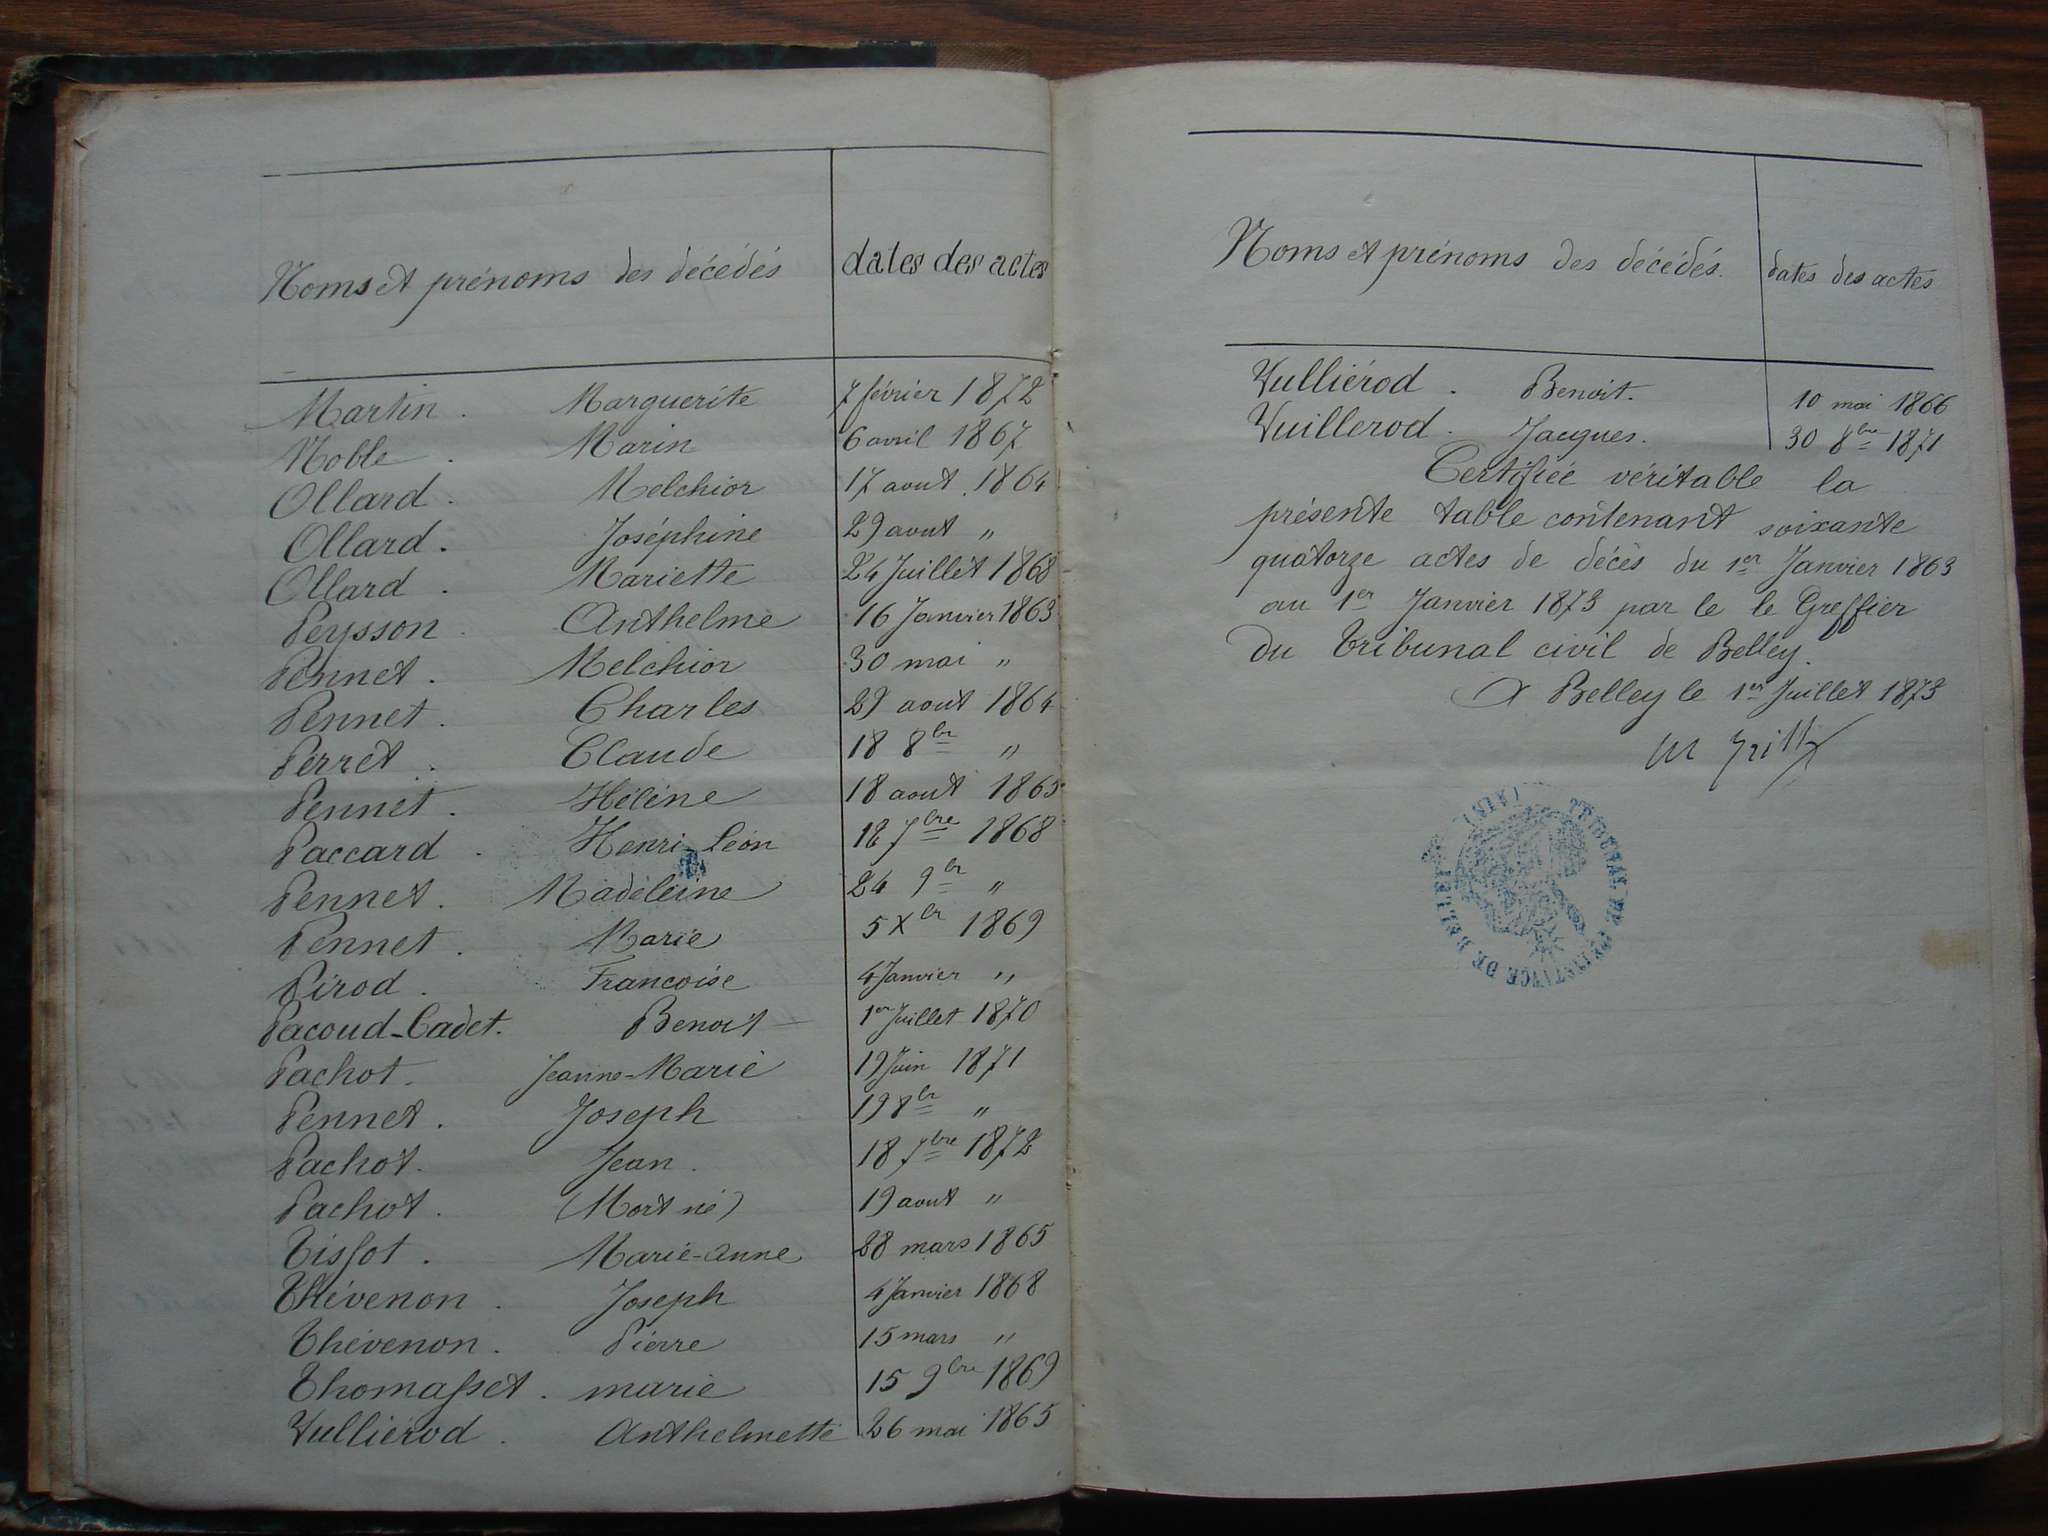 Noms et prénoms des décédés dates des actes
Martin . Marguerite 7 février 1872
Noble . Marin 6 avril 1867
Ollard . Melchior 17 aout 1864
Ollard . Joséphine 29 aout "
Ollard . Mariette 24 Juillet 1868
Peysson . Anthelme 16 Janvier 1863
Pennet . Melchior 30 mai "
Pennet . Charles 29 aout 1864
Perret . Claude 18 8bre "
Pennet . Hélène 18 aout 1865
Paccard . Henri Léon 18 7bre 1868
Pennet . Madéleine 24 9bre "
Pennet . Marie 5 Xbre 1869
Pirod . Francoise 4 Janvier "
Pacoud-Cadet . Benoit 1er Juillet 1870
Pachot . Jeanne-Marie 19 Juin 1871
Pennet . Joseph 19 8bre "
Pachot . Jean . 18 7bre 1872
Pachot . (Mort né) 19 aout "
Tissot . Marie-Anne 28 mars 1865
Thévenon . Joseph 4 Janvier 1868
Thévenon . Pierre 15 mars "
Thomasset . marie 15 9bre 1869
Vulliérod . Anthelmette 26 mai 1865
Noms et prénoms des décédés. dates des actes
Vulliérod . Benoit. 10 mai 1866
Vuillerod . Jacques. 30 8bre 1871
Certifiée véritable la
présente table contenant soixante
quatorze actes de décès du 1er Janvier 1863
au 1er Janvier 1873 par le le Greffier
du tribunal civil de Belley.
A Belley le 1er Juillet 1873
TRIBUNAL DE 1re INSTANCE DE BELLEY (AIN)